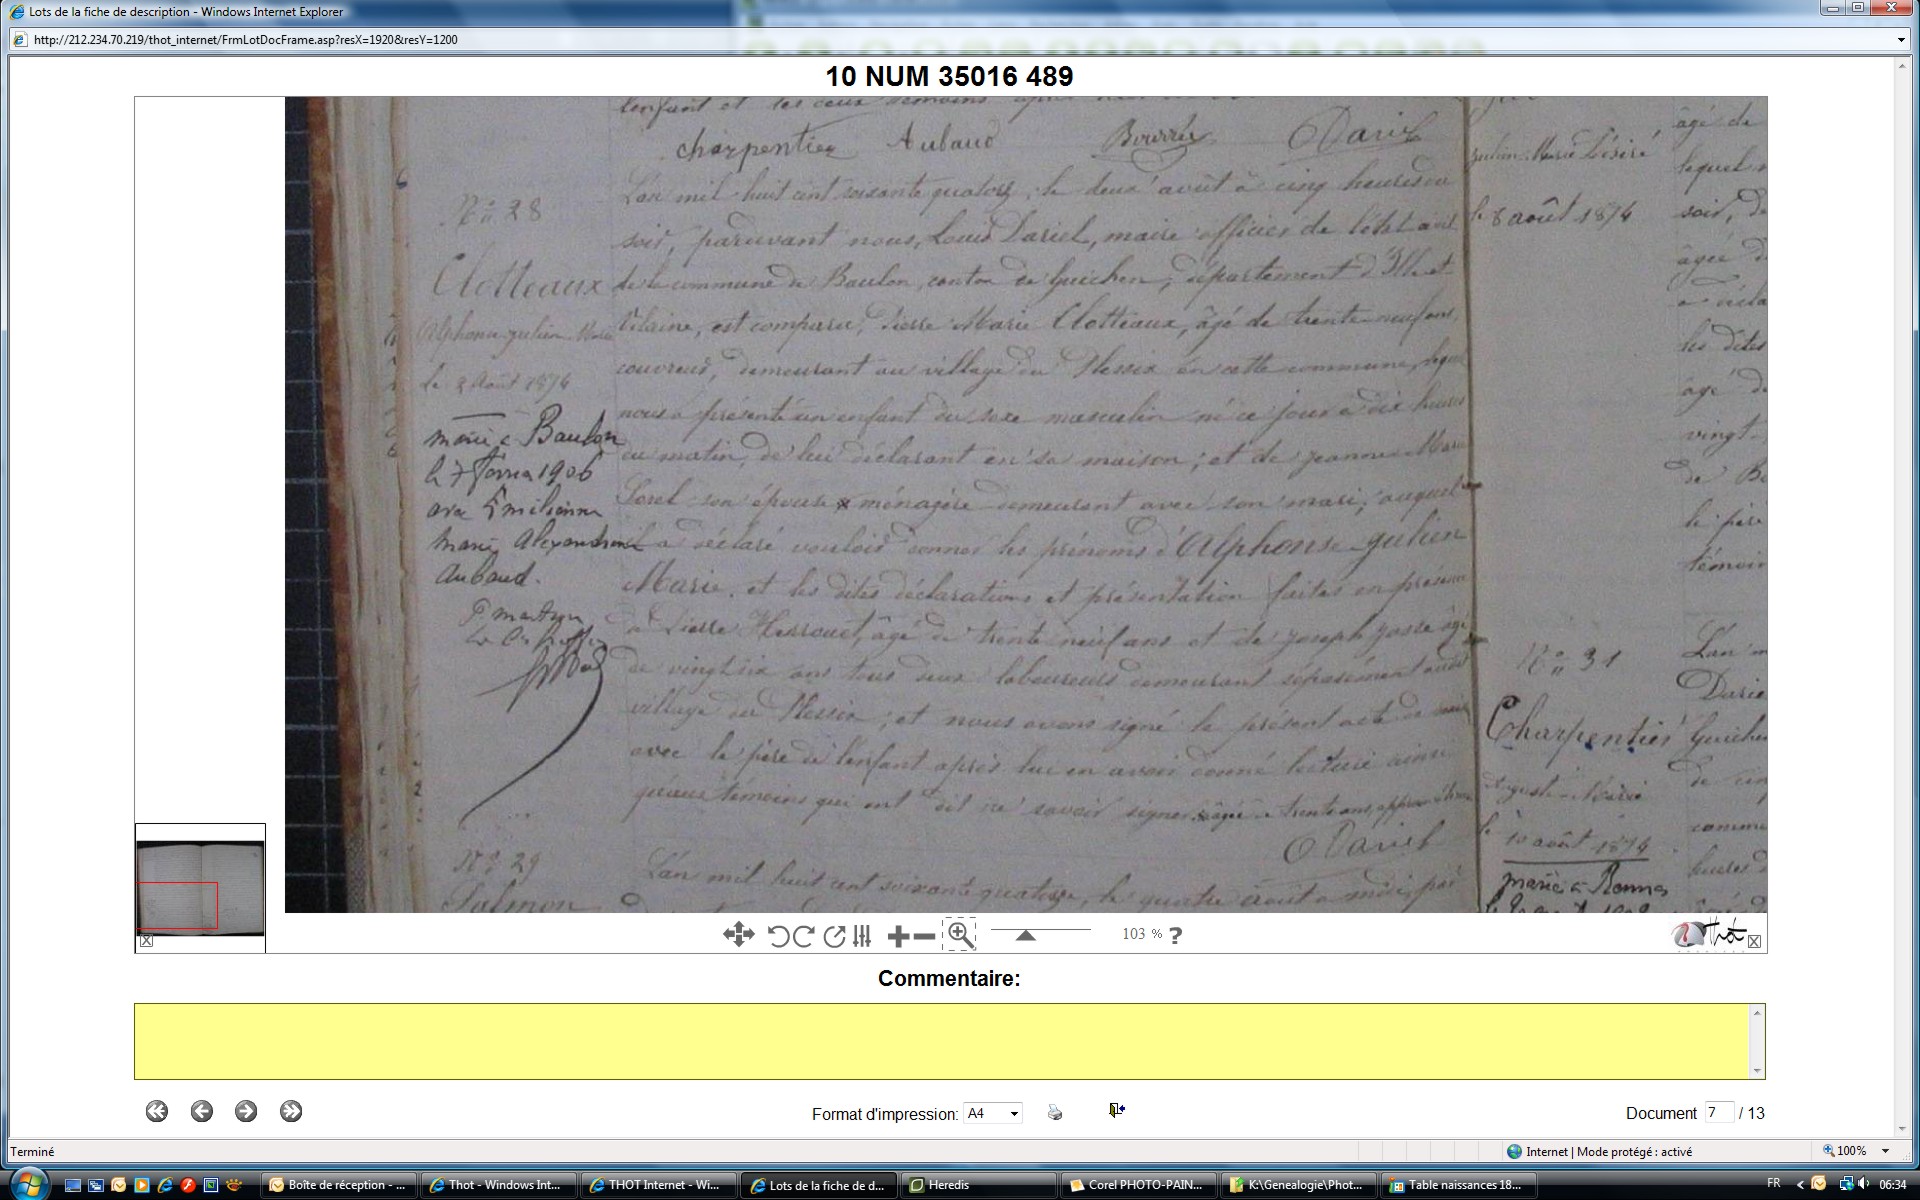 Lots de la fiche de description - Windows Internet Explorer
http://212.234.70.219/thot_internet/FrmLotDocFrame.asp?resX=1920&resY=1200
10 NUM 35016 489
l'enfant et les deux témoins après
charpentier Aubaud Bourrée Dariel
N° 28
Clotteaux
Alphonse Julien Marie
le 2 Août 1874
marié à Baulon
le 7 février 1906
avec Emilienne
Marie Alexandrine
Aubaud.
L'an mil huit cent soixante quatorze, le deux août à cinq heures du
soir, paruvant nous, Louis Dariel, maire officier de l'état civil
de la commune de Baulon, canton de Guichen, département d'Ille et
Vilaine, est comparu, Pierre Marie Clotteaux, âgé de trente-neuf ans,
couvreur, demeurant au village du Plessix en cette commune, lequel
nous a présenté un enfant du sexe masculin né ce jour à dix heures
du matin, de lui déclarant en sa maison; et de Jeanne Marie
Sorel son épouse x ménagère demeurant avec son mari, auquel
il a déclaré vouloir donner les prénoms d'Alphonse Julien
Marie. et les dites déclarations et présentation faites en présence
de Pierre Herrouet, âgé de trente neuf ans et de Joseph Josse âgé
de vingt six ans tous deux laboureurs demeurant séparément audit
village du Plessix; et nous avons signé le présent acte de
avec le père de l'enfant après lui en avoir donné lecture ainsi
qu'aux témoins qui ont dit ne savoir signer. x âgée de trente ans,
Dariel
N° 29
Salmon
L'an mil huit cent soixante quatorze, le quatre août à midi, par
Julien Marie Désiré
le 8 août 1874
N° 31
Charpentier
Auguste Marie
le 10 août 1874
marié à Rennes
âgé de
lequel
soir, de
les dites
âgé de
vingt
le père
témoin
L'an
Guichen
de cinq
comme
heures
103 % ?
Thot
Commentaire:
Format d'impression: A4
Document 7 / 13
Terminé
Internet | Mode protégé : activé
100%
Boîte de réception - ...
Thot - Windows Int...
THOT Internet - Wi...
Lots de la fiche de d...
Heredis
Corel PHOTO-PAIN...
K:\Genealogie\Phot...
Table naissances 18...
FR
06:34